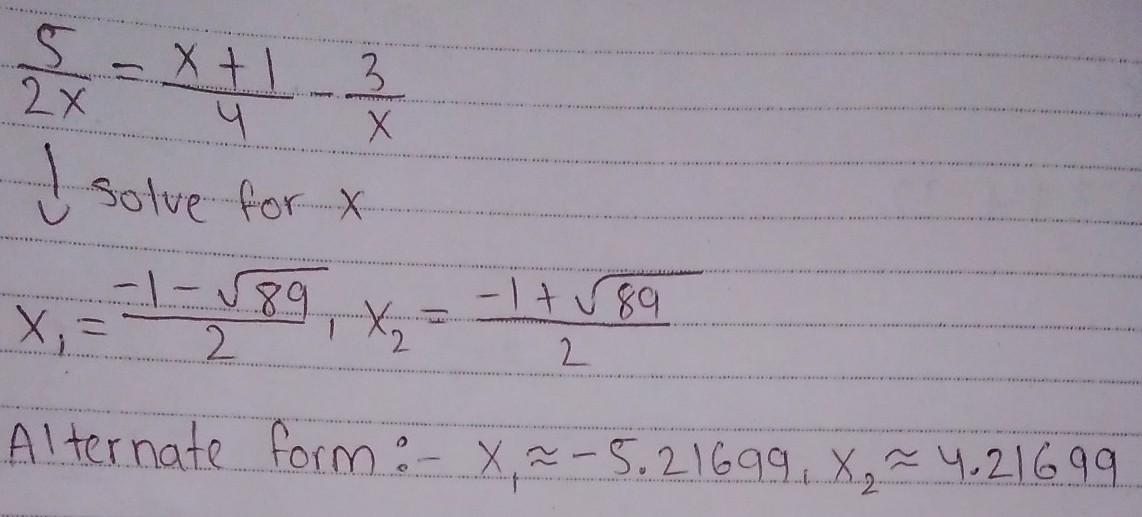 5/2x = x+1/4 - 3/x
↓ solve for x
x₁ = -1-√89/2, x₂ = -1+√89/2
Alternate form:- x₁ ≈ -5.21699, x₂ ≈ 4.21699